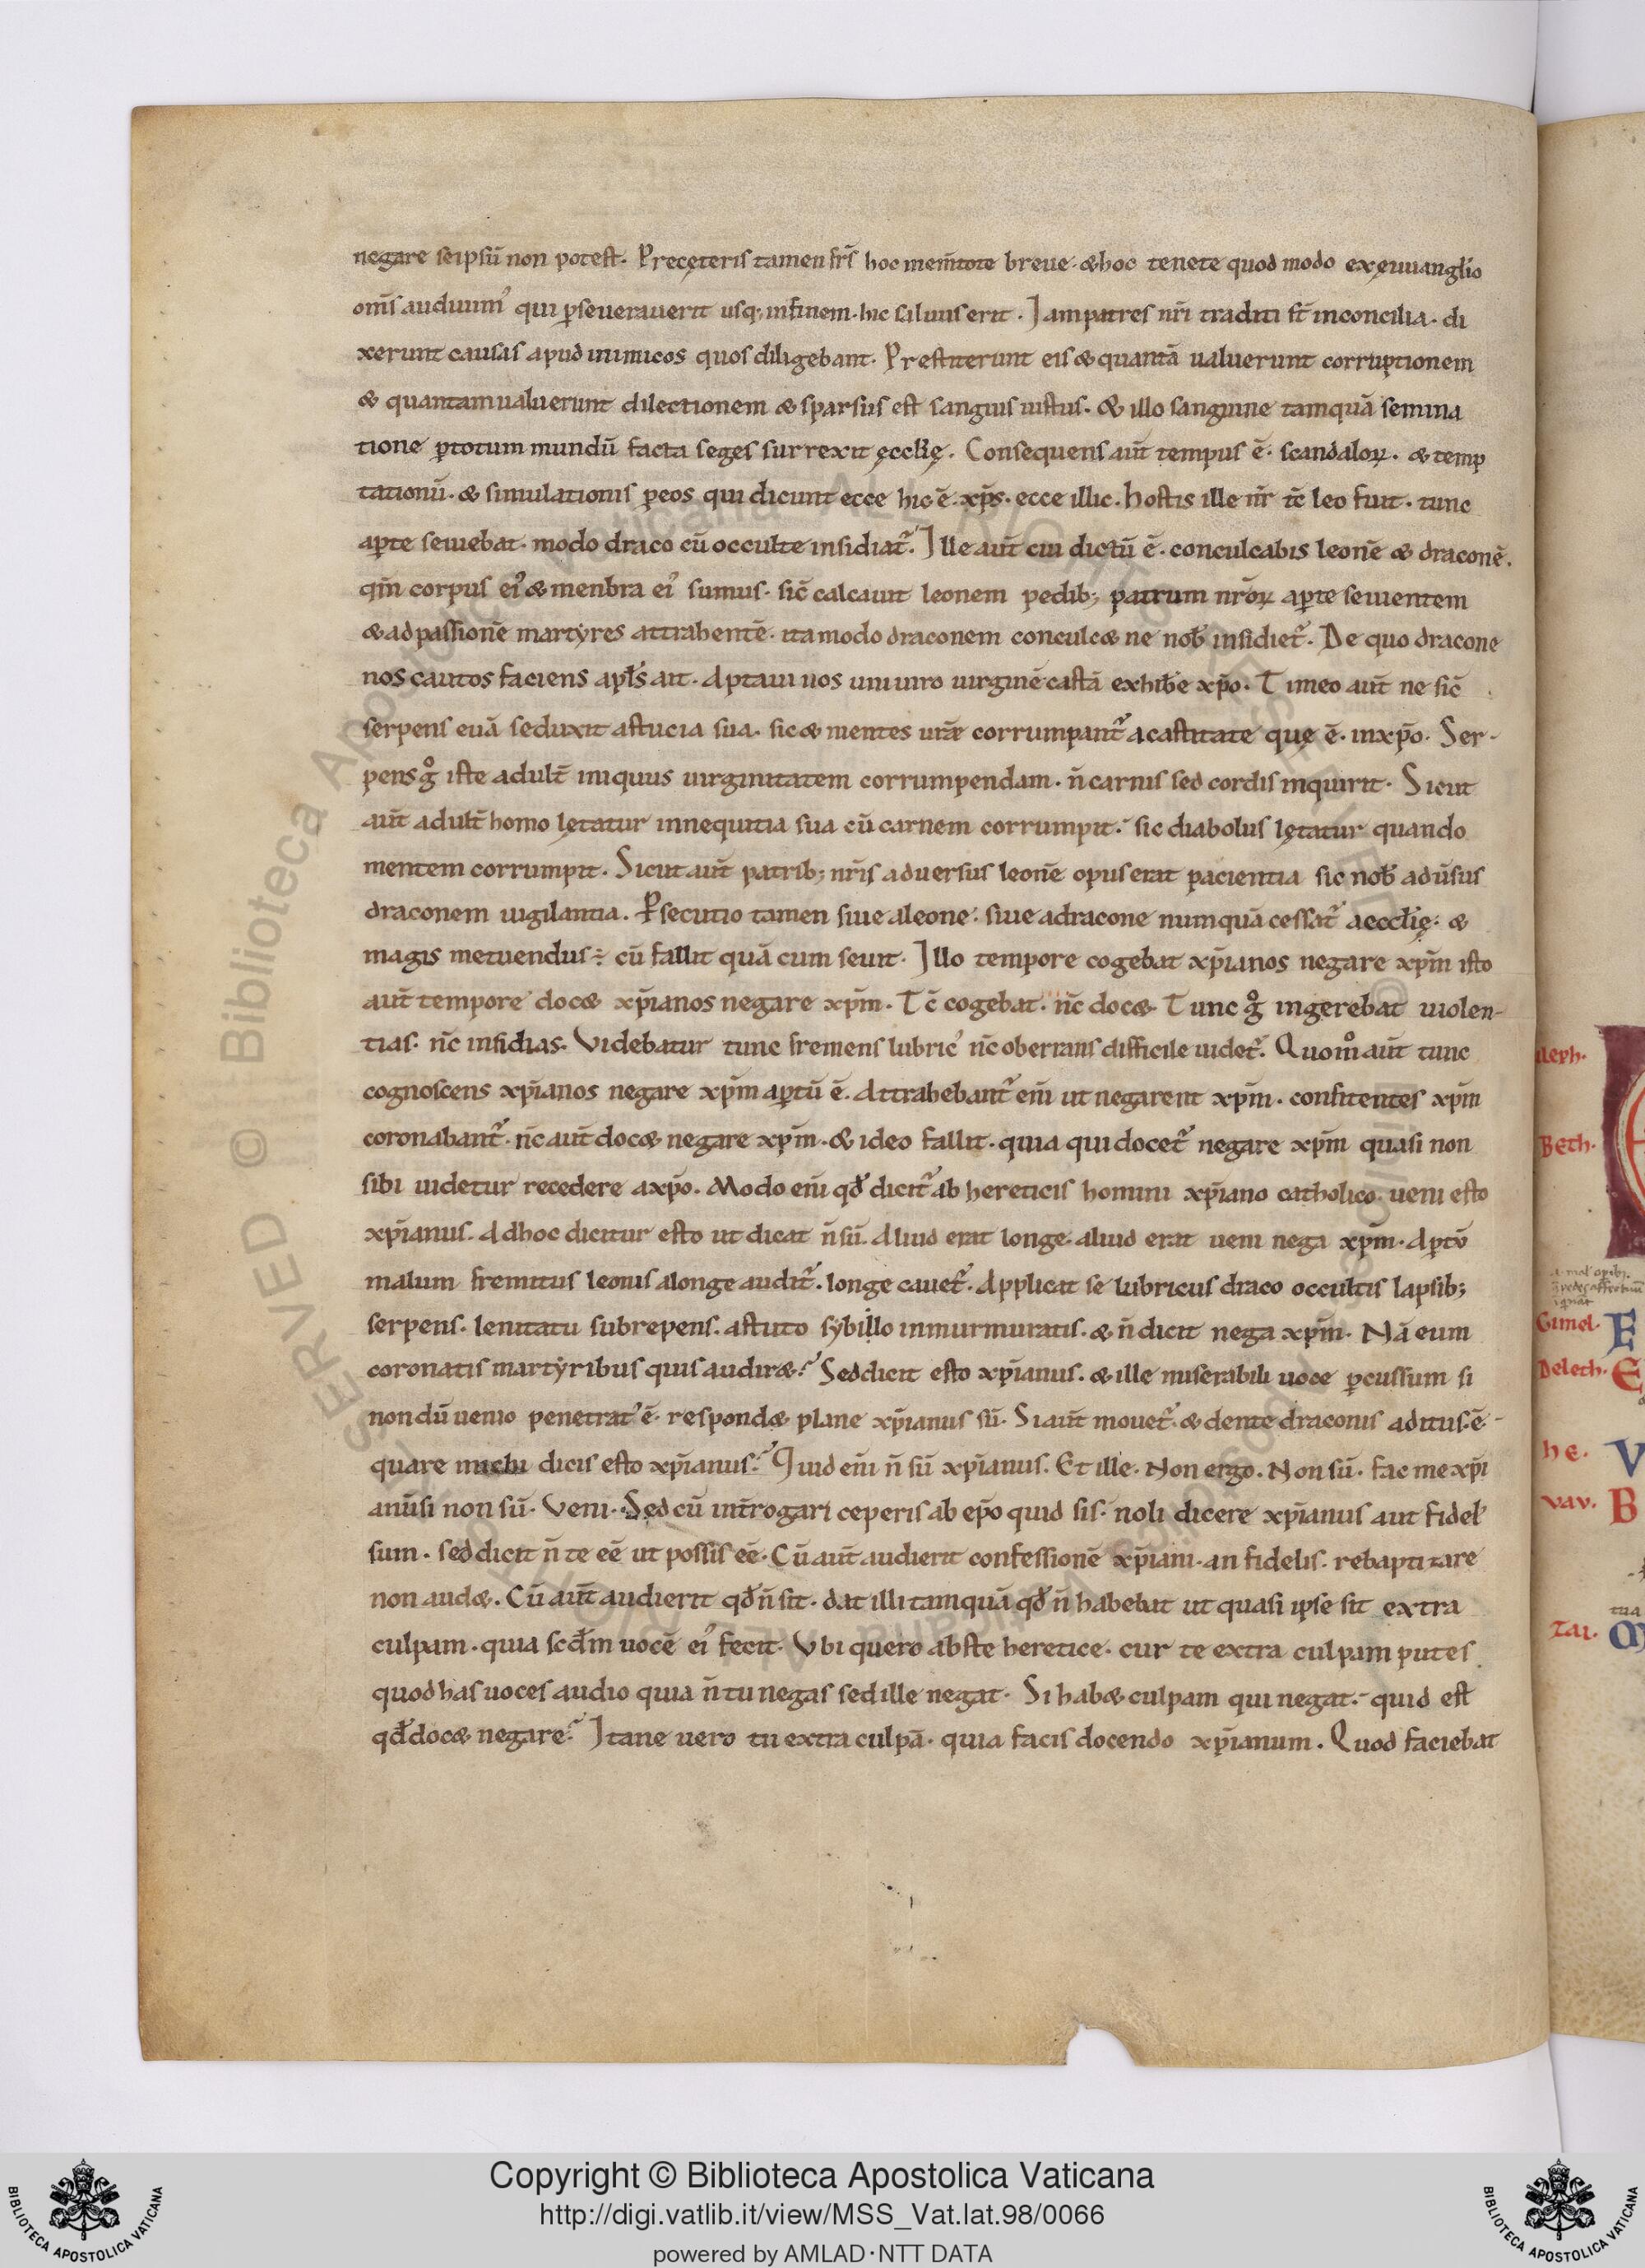 negare seipsū non potest. Precęteris tamen fr̄s hoc mem̄tote breue. & hoc tenete quod modo exęuuangl̄io
om̄s audiuim᾽ qui ꝑseuerauerit usq; infinem. hic saluus erit. Iam patres nr̄i traditi st̄ inconcilia. di
xerunt causas apud inimicos quos diligebant. Prestiterunt eis & quantā ualuerunt corruptionem
& quantam ualuerunt dilectionem & sparsus est sanguis iustus. & illo sanguine tamquā semina
tione ꝑtotum mundū facta seges surrexit ęccl̄ię. Consequens aut̄ tempus ē. scandaloꝝ. & temp
tationū. & simulationis ꝑeos qui dicunt ecce hic ē xp̄s. ecce illic. hostis ille nr̄ tc̄ leo fuit. tunc
aꝑte seuiebat. modo draco cū occulte insidiat᷑. Ille aut̄ cui dictū ē. conculcabis leonē & draconē.
qm̄ corpus ei᾽ & menbra ei᾽ sumus. sic̄ calcauit leonem pedib; patrum nr̄oꝝ aꝑte seuientem
& ad passionē martyres attrahentē. ita modo draconem conculc& ne nob̄ insidiet᷑. De quo dracone
nos cautos faciens apl̄s ait. Aptaui uos uni uiro uirginē castā exhib̄e xp̄o. Timeo aut̄ ne sic̄
serpens euā seduxit astucia sua. sic & mentes ur̄æ corrumpant᷑ acastitate quę ē. inxp̄o. Ser-
pens gͦ iste adult̄ iniquus uirginitatem corrumpendam. n̄ carnis sed cordis inquirit. Sicut
aut̄ adult̄ homo lętatur innequitia sua cū carnem corrumpit. sic diabolus lętatur quando
mentem corrumpit. Sicut aut̄ patrib; nr̄is aduersus leonē opus erat pacientia sic nob̄ adūsus
draconem uigilantia. Ꝑsecutio tamen siue aleone. siue adracone numquā cessat᷑ aeccl̄ię. &
magis metuendus ÷ cū fallit quā cum seuit. Illo tempore cogebat xp̄ianos negare xp̄m isto
aut̄ tempore doc& xp̄ianos negare xp̄m. Tc̄ cogebat. nc̄ doc&. Tunc gͦ ingerebat uiolen-
tias. nc̄ insidias. Videbatur tunc fremens lubric᾽ nc̄ oberrans difficile uidet᷑. Quomͦ aut̄ tunc
cognoscens xp̄ianos negare xp̄m aꝑtū ē. Attrahebant᷑ em̄ ut negarent xp̄m. confitentes xp̄m
coronabant᷑. nc̄ aut̄ doc& negare xp̄m. & ideo fallit. quia qui docet᷑ negare xp̄m quasi non
sibi uidetur recedere axp̄o. Modo em̄ qd̄ dicit᷑ ab hereticis homini xp̄iano catholico. ueni esto
xp̄ianus. Adhoc dicitur esto ut dicat n̄ sū. Aliud erat longe. aliud erat ueni nega xp̄m. Aꝑtū
malum fremitus leonis alonge audit᷑. longe cauet᷑. Applicat se lubricus draco occultis lapsib;
serpens. lenitatu subrepens. astuto sybillo inmurmuratis. & n̄ dicit nega xp̄m. Nā eum
coronatis martyribus quis audir&? Sed dicit esto xp̄ianus. & ille miserabili uoce ꝑcussum si
nondū uenio penetrat᾽ ē. respond& plane xp̄ianus sū. Si aut̄ mouet᷑ & dente draconis aditus ē-
quare michi dicis esto xp̄ianus? Quid em̄ n̄ sū xp̄ianus. Et ille. Non ergo. Non sū. fac me xp̄i
anū si non sū. Veni. Sed cū int̄rogari ceperis ab ep̄o quid sis. noli dicere xp̄ianus aut fidel᾽
sum. sed dicit n̄ te eē ut possis eē. Cū aut̄ audierit confessionē xp̄iani. an fidelis. rebaptizare
non aud&. Cū aut̄ audierit qd̄ n̄ sit. dat illi tamquā qd̄ n̄ habebat ut quasi ipse sit extra
culpam. quia scd̄m uocē ei᾽ fecit. Vbi quero abste heretice. cur te extra culpam putes
quod has uoces audio quia n̄ tu negas sed ille negat. Si hab& culpam qui negat. quid est
qd̄ doc& negare? Itane uero tu extra culpā. quia facis docendo xp̄ianum. Quod faciebat
Aleph.
Beth.
Gimel. E
Deleth. E
he. V
vav. B
Zai.
Copyright © Biblioteca Apostolica Vaticana
http://digi.vatlib.it/view/MSS_Vat.lat.98/0066
powered by AMLAD·NTT DATA
BIBLIOTECA APOSTOLICA VATICANA
BIBLIOTECA APOSTOLICA VATICANA